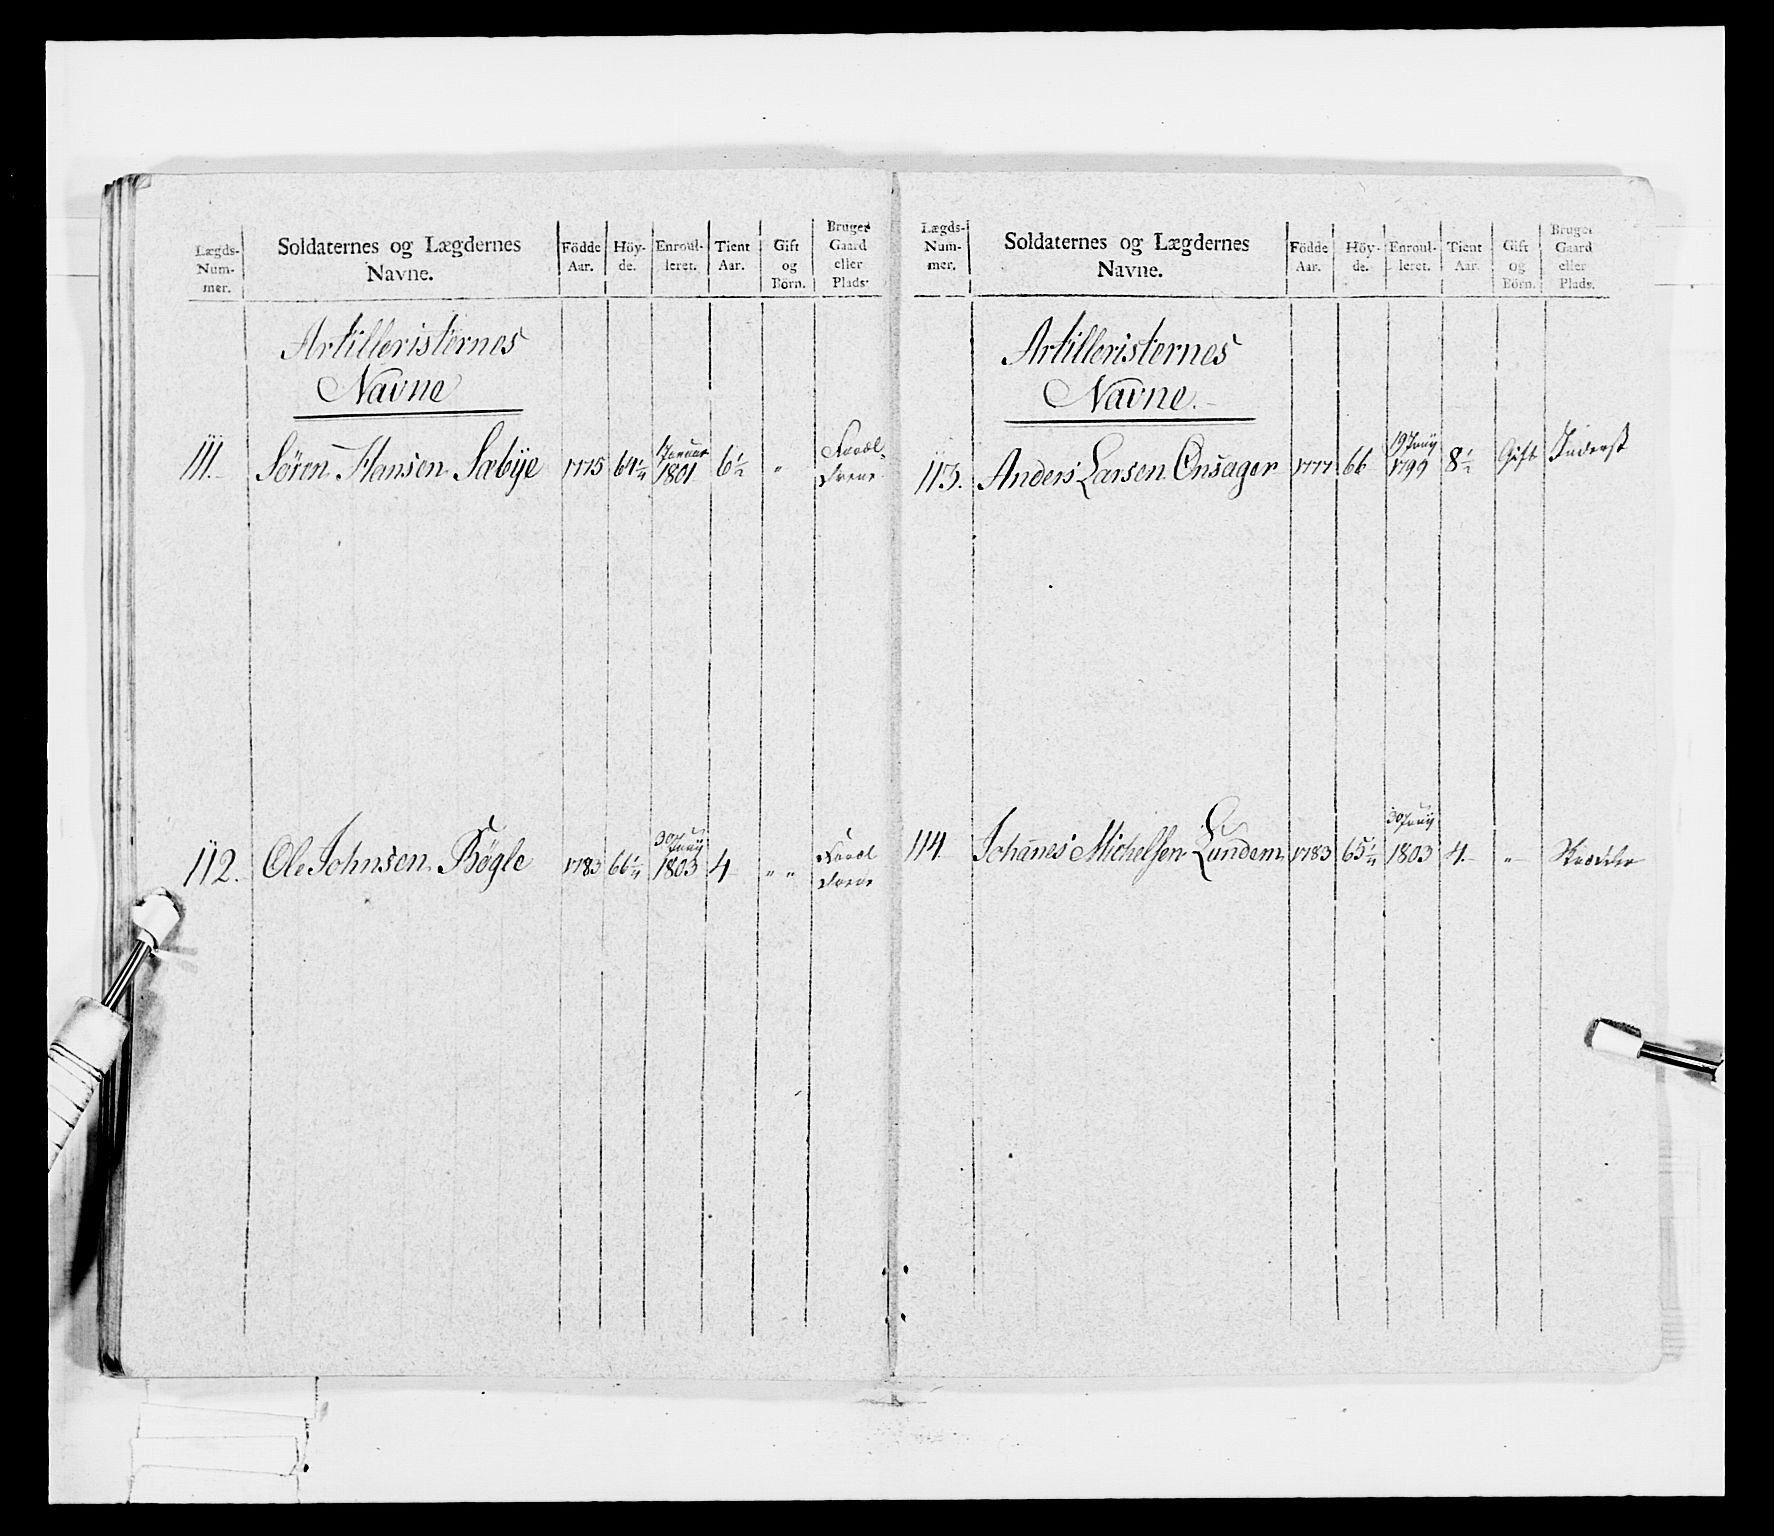 Lægds-Num-mer. Soldaternes og Lægdernes Navne. Födde Aar. Höy-de. Enroul-leret. Tient Aar. Gift og Börn. Bruger Gaard eller Plads.
Artilleristernes
Navne
111. Sören Hansen Sæbÿe 1775 64½ 1 Januar 1801 6½ "
112. Ole Johnsen Bøgle 1783 66½ 30 Junÿ 1803 4 " "
Lægds-Num-mer. Soldaternes og Lægdernes Navne. Födde Aar. Höy-de. Enroul-leret. Tient Aar. Gift og Börn. Bruger Gaard eller Plads.
Artilleristernes
Navne.
113. Anders Larsen Onsager 1777 66 19 Junÿ 1799 8½ Gift Inderst
114. Johanes Michelsen Lundem 1783 65½ 30 Junÿ 1803 4. "